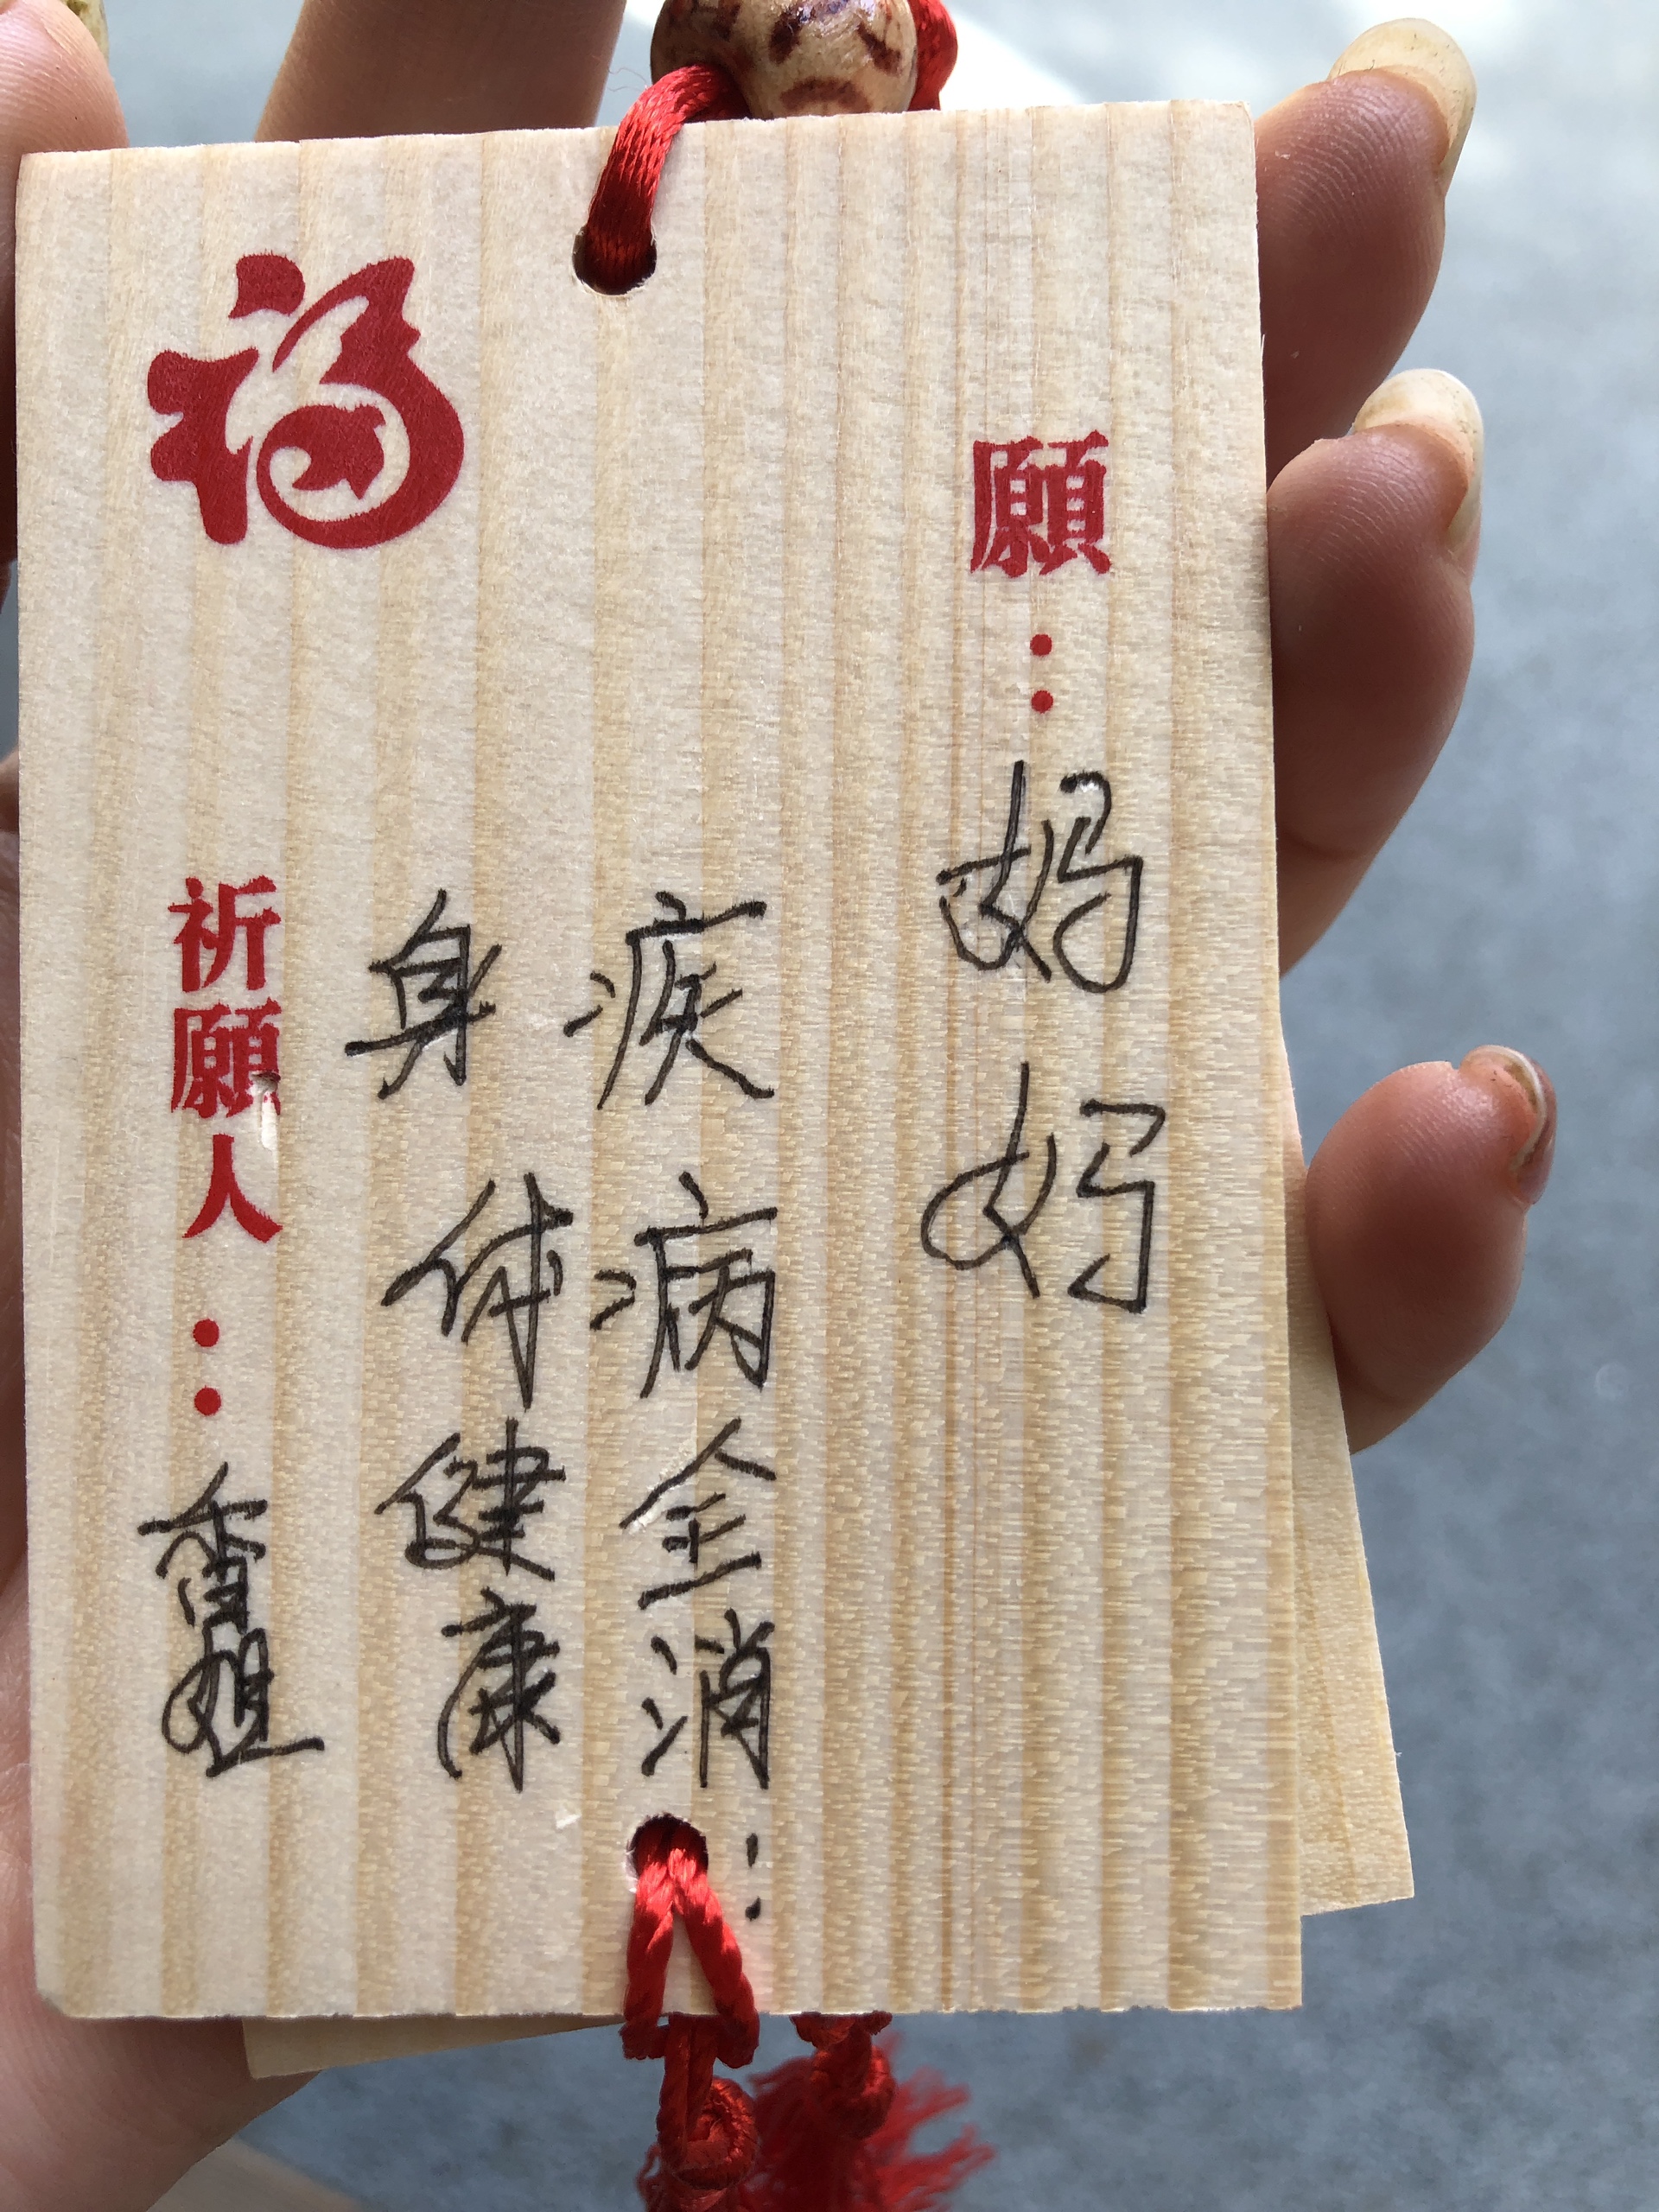 願：妈妈
疾病全消：
身体健康
福
祈願人：香姐